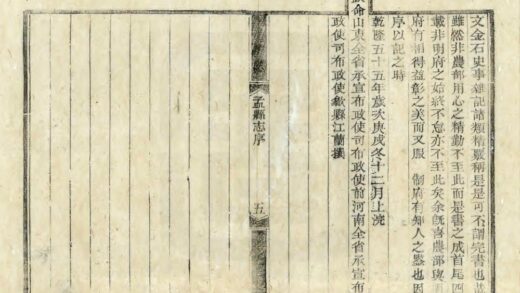 文金石史事雜記諸類精覈稱是是可不謂完書也
雖然非農部用心之精勤不至此而是書之成首尾四
載非明府之始終不怠亦不至此矣余旣喜農部與
府有相得益彰之美而又服 制府有知人之鑒也因
序以記之時
乾隆五十五年歲次庚戌冬十二月上浣
命山東全省承宣布政使司布政使前河南全省承宣布
政使司布政使歙縣江蘭撰
孟縣志序
五